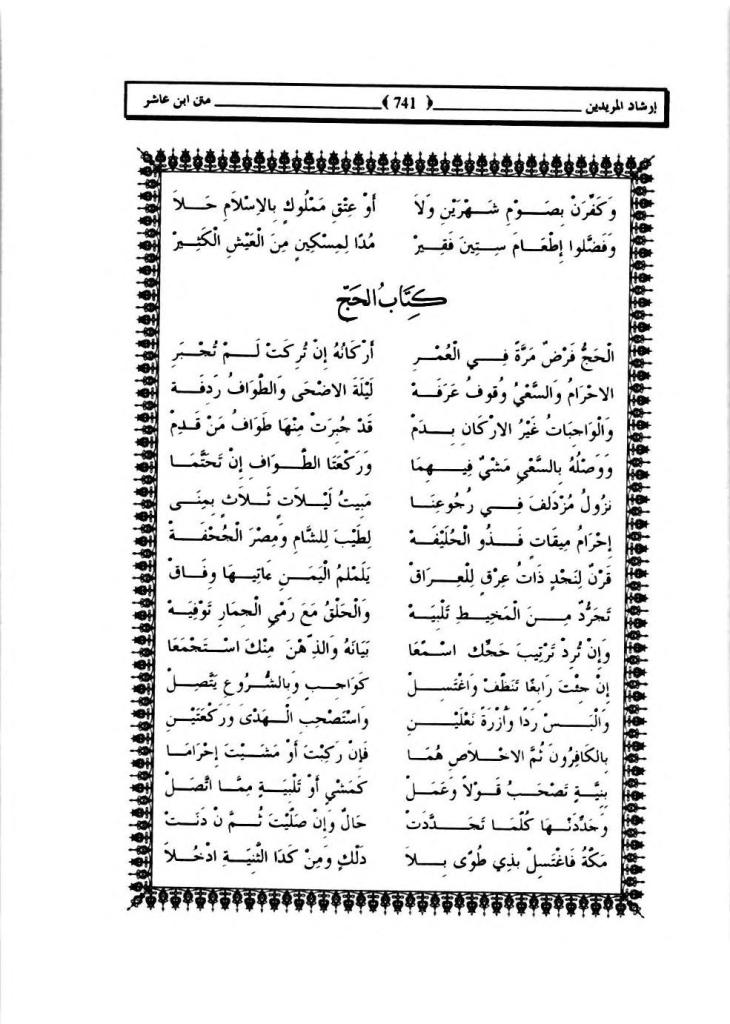 إرشاد المريدين ــــــــــ ﴿ 741 ﴾ ــــــــــ متن ابن عاشر
وَكَفِّرَنْ بِصَــوْمِ شَـهْرَيْنِ وَلَا أَوْ عِتْقِ مَمْلُوكٍ بِالِاسْلَامِ حَـلَا
وَفَضَّلوا إِطْعَـامَ سِـتِّينَ فَقِيرْ مُدًا لِمِسْكِينٍ مِنَ الْعَيْشِ الْكَثِيرْ
كِتَابُ الحَجّ
الْحَجُّ فَرْضٌ مَرَّةً فِـي الْعُمْـرِ أَرْكَانُهُ إِنْ تُرِكَتْ لَـمْ تُجْـبَرِ
الاحْرَامُ وَالسَّعْيُ وُقُوفُ عَرَفَـهْ لَيْلَةَ الاضْحَى وَالطَّوَافُ رَدِفَـهْ
وَالْوَاجِبَاتُ غَيْرُ الارْكَانِ بِـدَمْ قَدْ جُبِرَتْ مِنْهَا طَوَافُ مَنْ قَدِمْ
وَوَصْلُهُ بِالسَّعْيِ مَشْيٌ فِيـهِمَا وَرَكْعَتَا الطَّـوَافِ إِنْ تَحَتَّمَـا
نزُولُ مُزْدَلَفَ فِـي رُجُوعِنَـا مَبِيتُ لَيْـلَاتٍ ثَـلَاثٍ بِمِنَـى
إِحْرَامُ مِيقَاتٍ فَـذُو الْحُلَيْفَـهْ لِطَيْبَ لِلشَّامِ وَمِصْرَ الْجُحْفَـهْ
قَرْنٌ لِنَجْدٍ ذَاتُ عِرْقٍ لِلْعِرَاقْ يَلَمْلَمُ الْيَمَـنِ ءَاتِيـهَا وِفَـاقْ
تَجَرُّدٌ مِـنَ الْمَخِيـطِ تَلْبِيَـهْ وَالْحَلْقُ مَعَ رَمْيِ الْجِمَارِ تَوْفِيَـهْ
وَإِنْ تُرِدْ تَرْتِيبَ حَجِّكَ اسْـمَعَا بَيَانَهُ وَالذِّهْنَ مِنْكَ اسْـتَجْمِعَا
إِنْ جِئْتَ رَابِغًا تَنَظَّفْ وَاغْتَسِـلْ كَوَاجِـبٍ وَبِالشُّـرُوعِ يَتَّصِـلْ
وَالْبَـسْ رِدًا وَأُزْرَةً نَعْلَيْـنِ وَاسْتَصْحِبِ الْـهَدْىَ وَرَكْعَتَيْـنِ
بِالكَافِرُونَ ثُمَّ الاخْـلَاصِ هُمَـا فَإِنْ رَكِبْتَ أَوْ مَشَـيْتَ إِحْرَامَـا
بِنِيَّةٍ تَصْحَبُ قَـوْلًا وَعَمَـلْ كَمَشْيٍ أَوْ تَلْبِيَـةٍ مِمَّـا اتَّصَـلْ
وَجَدِّدَنْـهَا كُلَّمَا تَجَـدَّدَتْ حَالٌ وَإِنْ صَلَّيْتَ ثُـمَّ نْ دَنَـتْ
مَكَّةُ فَاغْتَسِلْ بِذِي طُوًى بِـلَا دَلْكٍ وَمِنْ كَدَا الثَّنِيَـةِ ادْخُـلَا